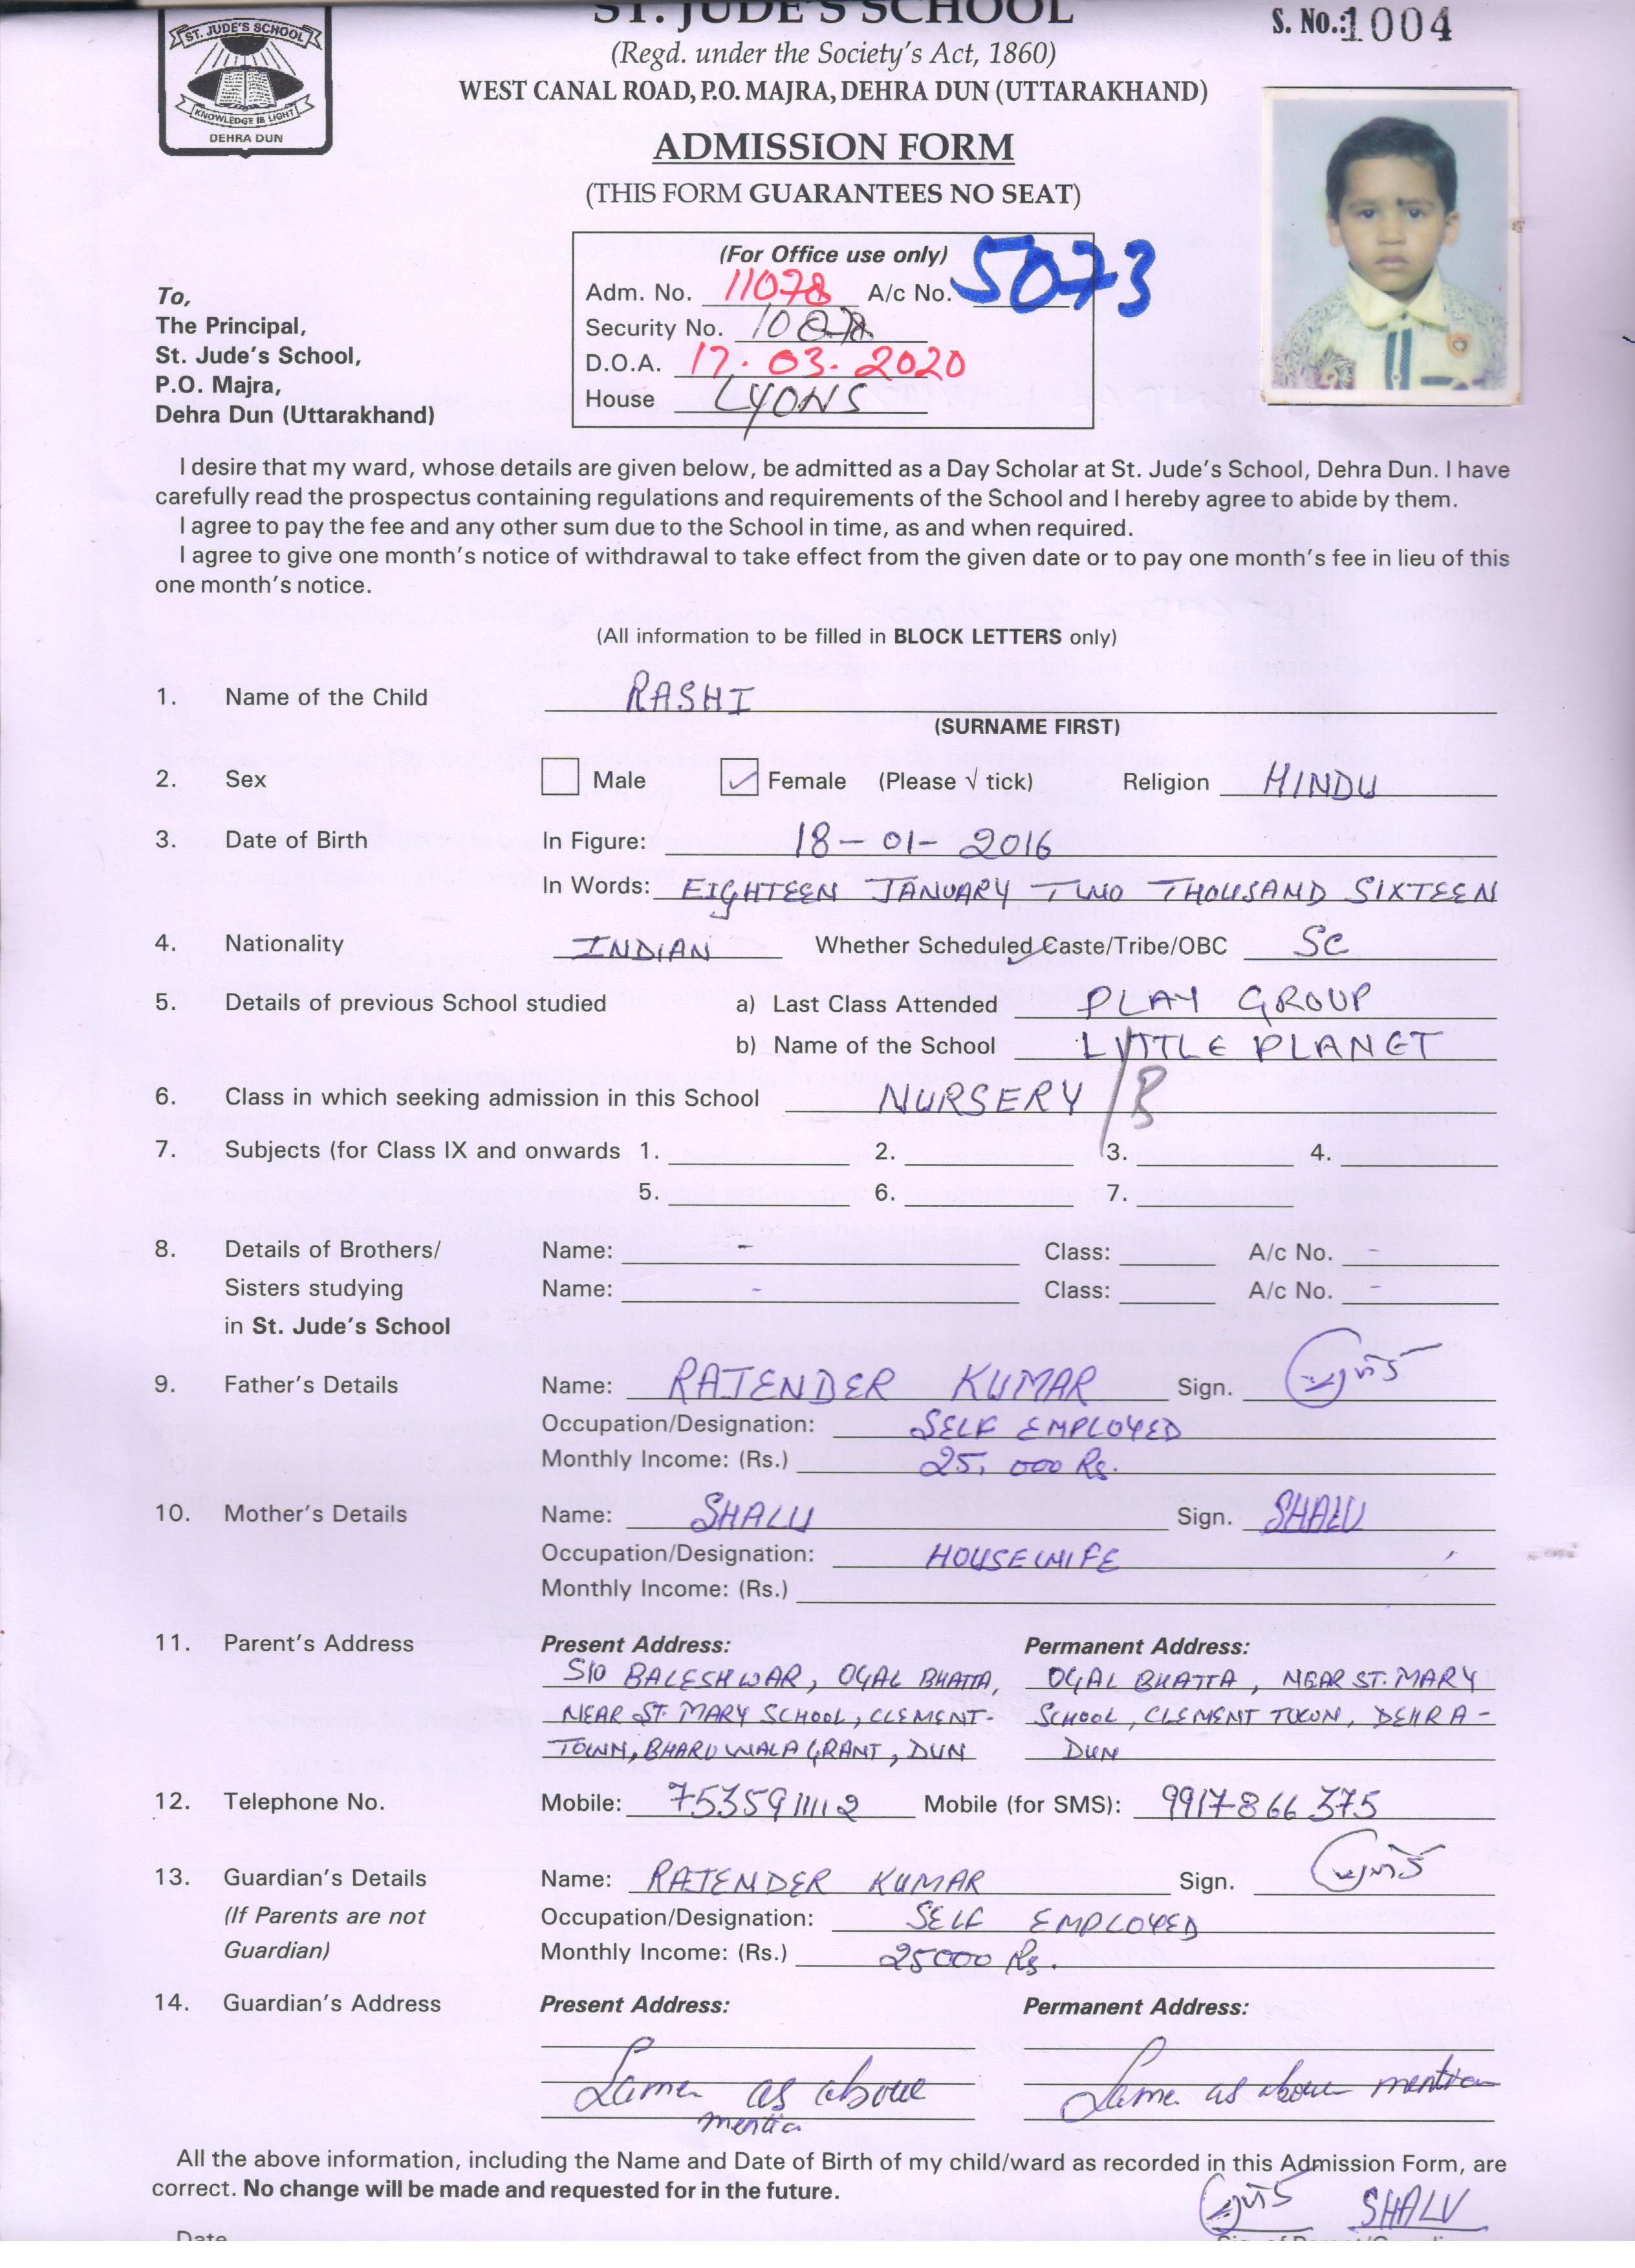 ST. JUDE'S SCHOOL
S. No.:1004
ST. JUDE'S SCHOOL
KNOWLEDGE IS LIGHT
DEHRA DUN
(Regd. under the Society's Act, 1860)
WEST CANAL ROAD, P.O. MAJRA, DEHRA DUN (UTTARAKHAND)
ADMISSION FORM
(THIS FORM GUARANTEES NO SEAT)
(For Office use only)
Adm. No. 11078 A/c No. 5073
Security No.
D.O.A. 17.03.2020
House LYONS
To,
The Principal,
St. Jude's School,
P.O. Majra,
Dehra Dun (Uttarakhand)
I desire that my ward, whose details are given below, be admitted as a Day Scholar at St. Jude's School, Dehra Dun. I have
carefully read the prospectus containing regulations and requirements of the School and I hereby agree to abide by them.
I agree to pay the fee and any other sum due to the School in time, as and when required.
I agree to give one month's notice of withdrawal to take effect from the given date or to pay one month's fee in lieu of this
one month's notice.
(All information to be filled in BLOCK LETTERS only)
1. Name of the Child RASHI
(SURNAME FIRST)
2. Sex Male ✓ Female (Please √ tick) Religion HINDU
3. Date of Birth In Figure: 18-01-2016
In Words: EIGHTEEN JANUARY TWO THOUSAND SIXTEEN
4. Nationality INDIAN Whether Scheduled Caste/Tribe/OBC SC
5. Details of previous School studied a) Last Class Attended PLAY GROUP
b) Name of the School LITTLE PLANET
6. Class in which seeking admission in this School NURSERY / B
7. Subjects (for Class IX and onwards 1. 2. 3. 4.
5. 6. 7.
8. Details of Brothers/ Name: - Class: A/c No. -
Sisters studying Name: - Class: A/c No. -
in St. Jude's School
9. Father's Details Name: RAJENDER KUMAR Sign.
Occupation/Designation: SELF EMPLOYED
Monthly Income: (Rs.) 25,000 Rs.
10. Mother's Details Name: SHALU Sign. SHALU
Occupation/Designation: HOUSEWIFE
Monthly Income: (Rs.)
11. Parent's Address Present Address: Permanent Address:
S/O BALESHWAR, OGAL BHATTA, OGAL BHATTA, NEAR ST. MARY
NEAR ST. MARY SCHOOL, CLEMENT- SCHOOL, CLEMENT TOWN, DEHRA-
TOWN, BHARUWALA GRANT, DUN DUN
12. Telephone No. Mobile: 7535911112 Mobile (for SMS): 9917866375
13. Guardian's Details Name: RAJENDER KUMAR Sign.
(If Parents are not Occupation/Designation: SELF EMPLOYED
Guardian) Monthly Income: (Rs.) 25000 Rs.
14. Guardian's Address Present Address: Permanent Address:
Same as above Same as above mention
mention
All the above information, including the Name and Date of Birth of my child/ward as recorded in this Admission Form, are
correct. No change will be made and requested for in the future.
SHALU
Date
Sign of Parent/Guardian